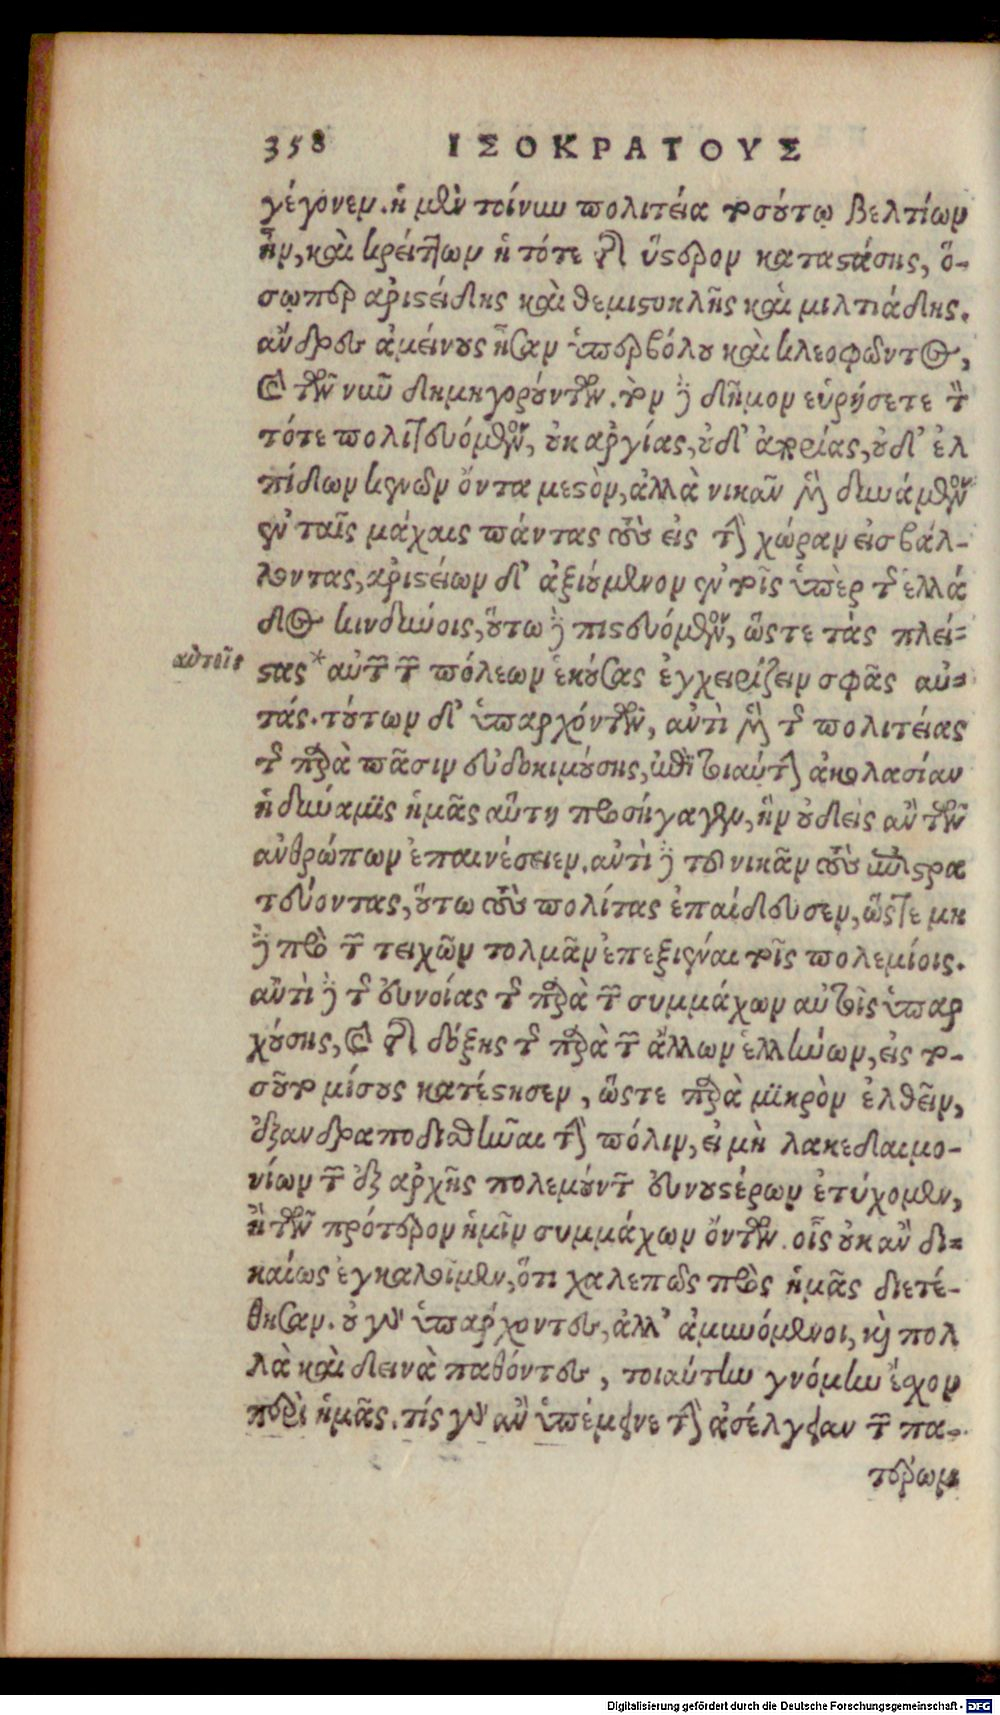 358 ΙΣΟΚΡΑΤΟΥΣ
γέγονεν. ἡ μὲν τοίνυν πολιτεία τοσούτῳ βελτίων
ἦν, καὶ κρείττων ἡ τότε τῆς ὕστερον καταστάσης, ὅ-
σῳπερ ἀριστείδης καὶ θεμιστοκλῆς καὶ μιλτιάδης.
ἄνδρες ἀμείνους ἦσαν ὑπερβόλου καὶ κλεοφῶντος,
καὶ τῶν νῦν δημηγορούντων. τὸν δὲ δῆμον εὑρήσετε τὸν
τότε πολιτευόμενον, οὐκ ἀργίας, οὐδ' ἀπορίας, οὐδ' ἐλ
πίδων κενῶν ὄντα μεστὸν, ἀλλὰ νικᾶν μὲν δυνάμενον
ἐν ταῖς μάχαις πάντας τοὺς εἰς τὴν χώραν εἰσβάλ-
λοντας, ἀριστείων δ' ἀξιούμενον ἐν τοῖς ὑπὲρ τῆς ἑλλά
δος κινδύνοις, οὕτω δὲ πιστευόμενον, ὥστε τὰς πλεί-
αὐτοῖς
στας * αὐτῶν τῶν πόλεων ἑκούσας ἐγχειρίζειν σφᾶς αὐ-
τάς. τούτων δ' ὑπαρχόντων, ἀντὶ μὲν τῆς πολιτείας
τῆς παρὰ πᾶσιν εὐδοκιμούσης, ἐπὶ τοιαύτην ἀκολασίαν
ἡ δύναμις ἡμᾶς αὕτη προσήγαγεν, ἣν οὐδεὶς ἂν τῶν
ἀνθρώπων ἐπαινέσειεν. ἀντὶ δὲ τοῦ νικᾶν τοὺς ἐπιστρα
τεύοντας, οὕτω τοὺς πολίτας ἐπαίδευσεν, ὥστε μη
δὲ πρὸ τῶν τειχῶν τολμᾶν ἐπεξιέναι τοῖς πολεμίοις.
ἀντὶ δὲ τῆς εὐνοίας τῆς παρὰ τῶν συμμάχων αὐτοῖς ὑπαρ
χούσης, καὶ τῆς δόξης τῆς παρὰ τῶν ἄλλων ἑλλήνων, εἰς το-
σοῦτο μίσους κατέστησεν, ὥστε παρὰ μικρὸν ἐλθεῖν,
ἐξανδραποδισθῆναι τὴν πόλιν, εἰ μὴ λακεδαιμο-
νίων τῶν ἐξ ἀρχῆς πολεμούντων εὐνουστέρων ἐτύχομεν,
ἢ τῶν πρότερον ἡμῖν συμμάχων ὄντων. οἷς οὐκ ἂν δι-
καίως ἐγκαλοῖμεν, ὅτι χαλεπῶς πρὸς ἡμᾶς διετέ-
θησαν. οὐ γὰρ ὑπάρχοντες, ἀλλ' ἀμυνόμενοι, καὶ πολ
λὰ καὶ δεινὰ παθόντες, τοιαύτην γνώμην ἔσχον
περὶ ἡμᾶς. τίς γὰρ ἂν ὑπέμεινε τὴν ἀσέλγειαν τῶν πα-
τέρων
Digitalisierung gefördert durch die Deutsche Forschungsgemeinschaft - DFG